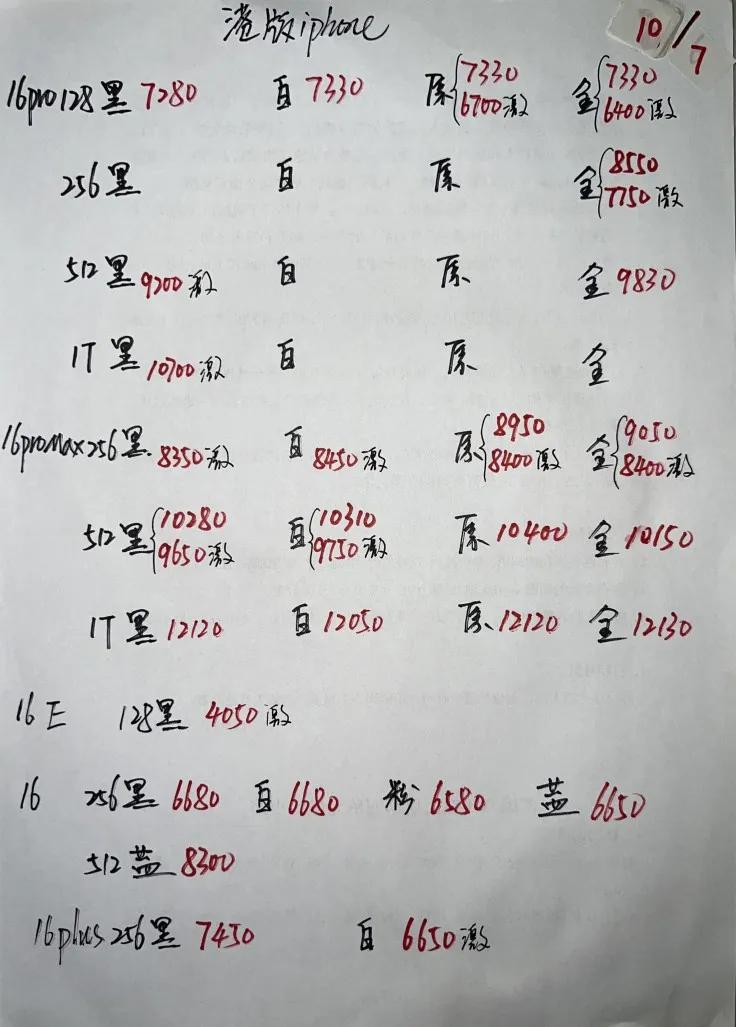 港版iphone 10/7
16pro128黑 7280 白 7330 原{7330 6700激 金{7330 6400激
256黑 白 原 金{8550 7750激
512黑 9200激 白 原 金 9830
1T 黑 10700激 白 原 金
16proMax256黑 8350激 白 8450激 原{8950 8400激 金{9050 8400激
512黑{10280 9650激 白{10310 9750激 原 10400 金 10150
1T黑 12120 白 12050 原 12120 金 12130
16E 128黑 4050激
16 256黑 6680 白 6680 粉 6580 蓝 6650
512蓝 8300
16plus 256黑 7450 白 6650激